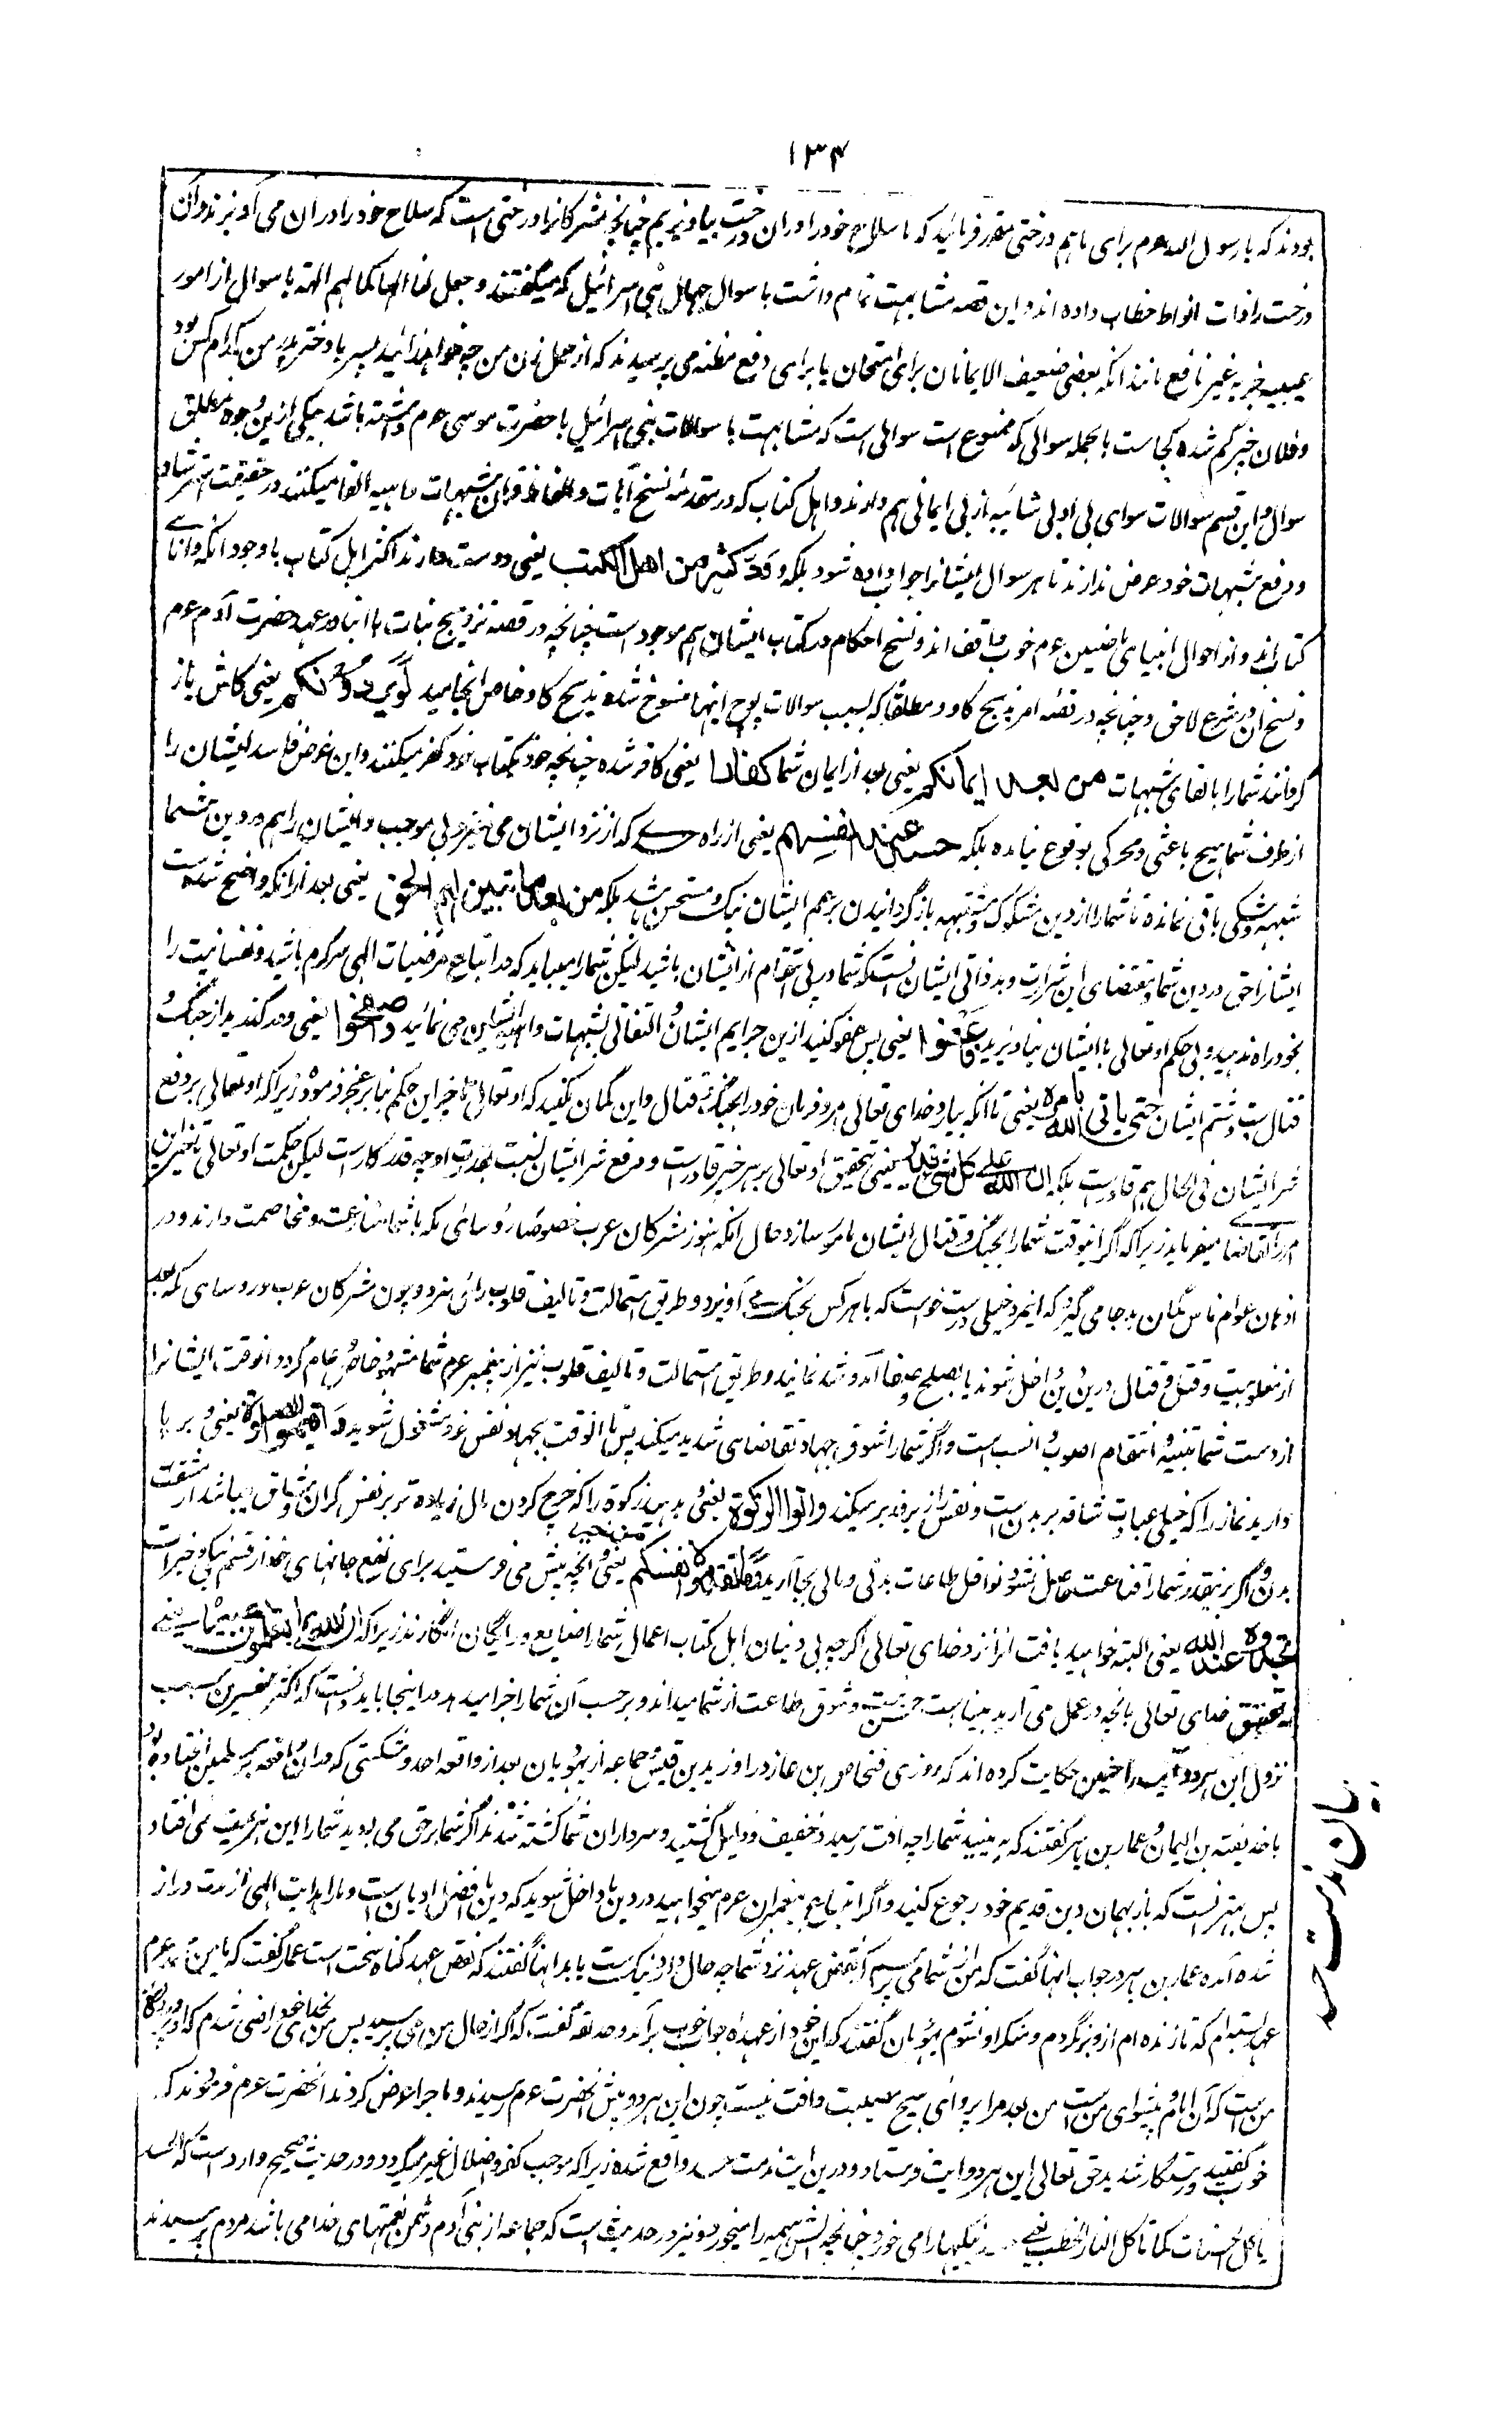 ۱۳۴
بودند که یا رسول الله عم برای ما هم درختی مقرر فرمائید که ما سلاح خود را دران درخت بیاویزیم چنانچه مشرکانرا درختی است که سلاح خود را دران می آویزند و آن
درخت را ذات انواط خطاب داده اند و این قصه مشابهت تمام داشت با سوال جهال بنی اسرائیل که میگفتند و جعل لنا الها کما لهم الهة یا سوال از امور
غیبیه خبریه غیر نافع مانند آنکه بعضی ضعیف الایمانان برای امتحان یا برای دفع مظنه می پرسیدند که از حمل زن من چه خواهد زائید پسر یا دختر پدر من کدام کس بود
و فلان خبر گم شده کجاست بالجمله سوالی که ممنوع است سوالی است که مشابهت با سوالات بنی اسرائیل با حضرت موسی عم داشته باشد بیکی ازین وجوه مطلق
سوال و این قسم سوالات سوای بی ادبی شائبه از بی ایمانی هم دارند و اهل کتاب که در مقدمه نسخ آیات و الفاظ قرآن شبهات واهیه القا میکنند در حقیقت استرشاد
و رفع شبهات خود غرض ندارند تا هر سوال ایشانرا جواب داده شود بلکه ود کثیر من اهل الکتب یعنی دوست دارند اکثر اهل کتاب با وجود آنکه دانای
کتاب اند و از احوال انبیای ماضیین عم خوب واقف اند و نسخ احکام در کتاب ایشان هم موجود است چنانچه در قصه تزویج بنات با ابنا در عهد حضرت آدم عم
و نسخ آن در شرع لاحق و چنانچه در قصه امر به ذبح گاو مطلقا که بسبب سوالات پوچ اینها منسوخ شده بذبح گاو خاص انجامید لو یردونکم یعنی کاش باز
گردانند شما را بالقای شبهات من بعد ایمانکم یعنی بعد از ایمان شما کفارا یعنی کافر شده چنانچه خود بکتاب خود کفر میکنند و این غرض فاسد ایشان را
از طرف شما هیچ باعثی و محرکی بوقوع نیامده بلکه حسدا من عند انفسهم یعنی از راه حسدی که از نزد ایشان می خیزد بی موجب و ایشان را هم در دین شما
شبهه و شکی باقی نمانده تا شما را از دین مشکوک و مشتبه باز گردانیدن بزعم ایشان نیک و مستحسن باشد بلکه من بعد ما تبین لهم الحق یعنی بعد از آنکه واضح شده است
ایشانرا حق در دین شما و مقتضای این شرارت و بد ذاتی ایشان آنست که شما در پی انتقام از ایشان باشید لیکن شما را میباید که در اتباع مرضیات الهی سرگرم باشید و نفسانیت را
بخود راه ندهید و بی حکم او تعالی با ایشان نیاویزید فاعفوا یعنی پس عفو کنید ازین جرایم ایشان و القائی شبهات و می نمائید واصفحوا یعنی و در گذرید از جنگ و
قتال سب و شتم ایشان حتی یاتی الله بامره یعنی تا آنکه بیارد خدای تعالی امر و فرمان خود را بجنگ و قتال و این گمان نکنید که او تعالی تاخیر این حکم بنا بر عجز فرموده زیرا که او تعالی بر دفع
شر ایشان فی الحال هم قادرست بلکه ان الله علی کل شئ قدیر یعنی بتحقیق او تعالی بر هر چیز قادر است و دفع شر ایشان نسبت بقدرت او چه قدر کار است لیکن حکمت او تعالی تاخیر این
امر را تقاضا میفرماید زیرا که اگر اینوقت شما را بجنگ و قتال ایشان مامور سازد حال آنکه هنوز مشرکان عرب خصوصا روسائی مکه با شما منازعت و مخاصمت دارند و در
اذهان عوام ناس گمان بد جا می گیرد که اینمرد خیلی درست خوست که با هر کس بجنگ می آویزد و طریق استمالت و تالیف قلوب رائی سزد و چون مشرکان عرب و روسای مکه بعد
از مغلوبیت و قتل و قتال درین دین داخل شوند یا بصلح و صفا آمد و شد نمایند و طریق استمالت و تالیف قلوب نیز از پیغمبر عم شما مشهود خاص و عام گردد آنوقت ایشانرا
از دست شما تنبیه و انتقام اصوب و انسب است و اگر شما را شوق جهاد تقاضای شدید میکند پس تا آنوقت بجهاد نفس خود مشغول شوید واقیموا الصلوة یعنی و بر پا
دارید نماز را که خیلی عبادت شاقه بر بدن است و نفس را زیر و زبر میکند واتوا الزکوة یعنی و بدهید زکوة را که خرج کردن مال زیاده تر بر نفس گران و شاق میباشد از مشقت
بدن و اگر برینقدر شما را قناعت حاصل نشود نوافل طاعات بدنی و مالی بجا آرید وما تقدموا لانفسکم من خیر یعنی و آنچه پیش می فرستید برای نفع جانهای خود از قسم نیکی و خیرات
تجدوه عند الله یعنی البته خواهید یافت آنرا نزد خدای تعالی اگر چه بی دینان اهل کتاب اعمال شما را ضایع و رایگان انگارند زیرا که ان الله بما تعملون بصیر یعنی
به تحقیق خدای تعالی بآنچه در عمل می آرید بیناست حسن نیت و شوق طاعت از شما میداند و بر حسب آن شما را جزا میدهد در اینجا باید دانست که اکثر مفسرین سبب
نزول این هر دو آیت را چنین حکایت کرده اند که روزی فنحاص بن عازورا و زید بن قیس و جماعه از یهودیان بعد از واقعه احد و شکستی که در آن واقعه بر مسلمین افتاده بود
با حذیفة بن الیمان و عمار بن یاسر گفتند که به بینید شما را چه آفت رسید و خفیف و ذلیل گشتید و سرداران شما کشته شدند اگر شما بر حق می بودید شما را این هزیمت نمی افتاد
پس بهتر آنست که باز بهمان دین قدیم خود رجوع کنید و اگر اتباع پیغمبران عم میخواهید در دین ما داخل شوید که دین ما افضل ادیان است و ما را هدایت الهی از مدت دراز
شده آمده عمار بن یاسر در جواب آنها گفت که من از شما می پرسم که نقض عهد نزد شما چه حال دارد نیک ست یا بد آنها گفتند که نقض عهد گناه سخت است عمار گفت که با این پیغمبر عم
عهد بسته ام که تا زنده ام ازو برنگردم و منکر او نشوم یهودیان گفتند که این خود از عهده جواب خوب برآمد و حذیفه گفت که اگر از حال من می پرسید پس من بخدای خود راضی شدم که او پروردگار
من ست که آن امام و پیشوای من ست من بعد مرا پروای هیچ مصیبت و آفت نیست چون این هر دو پیش آنحضرت عم رسیدند و ماجرا عرض کردند آنحضرت عم فرمودند که
خوب گفتید و رستگار شدید حق تعالی این هر دو آیت فرستاد و درین آیت مذمت حسد واقع شده زیرا که موجب کفر و اضلال غیر میگردد و در حدیث صحیح وارد است که الحسد
یاکل الحسنات کما تاکل النار الحطب یعنی نیکیها را می خورد چنانچه آتش هیمه را میخورد و نیز در حدیث است که جماعه از بنی آدم دشمن نعمتهای خدا می باشد مردم پرسیدند
بیان مذمت حسد